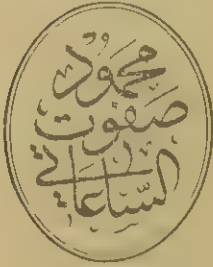 محمود
صفوت
الساعاتي